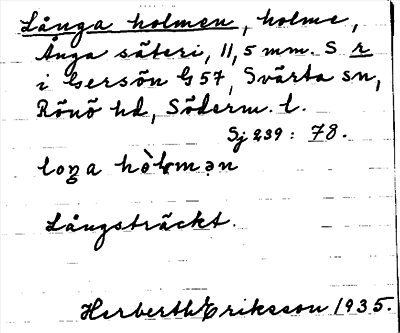 Långa holmen, holme,
Ånga säteri, 11,5 mm. S r
i Gersön G 57, Svärta sn,
Rönö hd, Söderm. l.
Sj 239: 78.
Långsträckt.
Herberth Eriksson 1935.